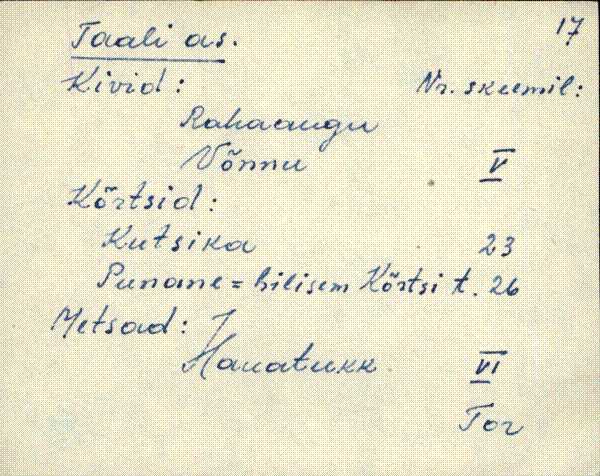 17
Taali as.
Kivid: Nr. skeemil:
Rahaaugu
Võnnu V
Kõrtsid:
Kutsika 23
Punane = hilisem Kõrtsi t. 26
Metsad:
Hauatukk VI
Tor